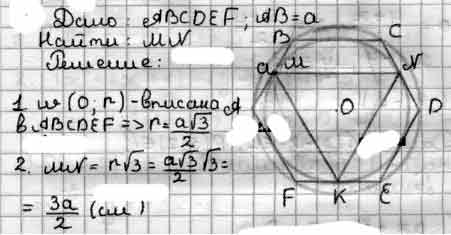 Дано: ABCDEF; AB=a
Найти: MN
Решение:
1. w (O; r) - вписана
в ABCDEF => r = a√3/2
2. MN = r√3 = a√3/2 √3 =
= 3a/2 (см)
B C
a M N
A O D
F K E